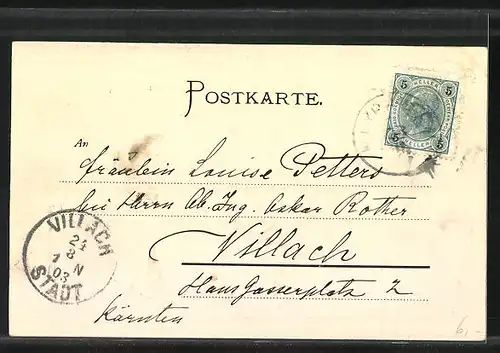 POSTKARTE.
5 HELLER 5
5 HELLER 5
An
Fräulein Louise Petters
bei Herrn Ob. Ing. Oskar Rother
Villach
Hans Gasserplatz 2
Kärnten
VILLACH
24
8
7 N
03
STADT
6,-